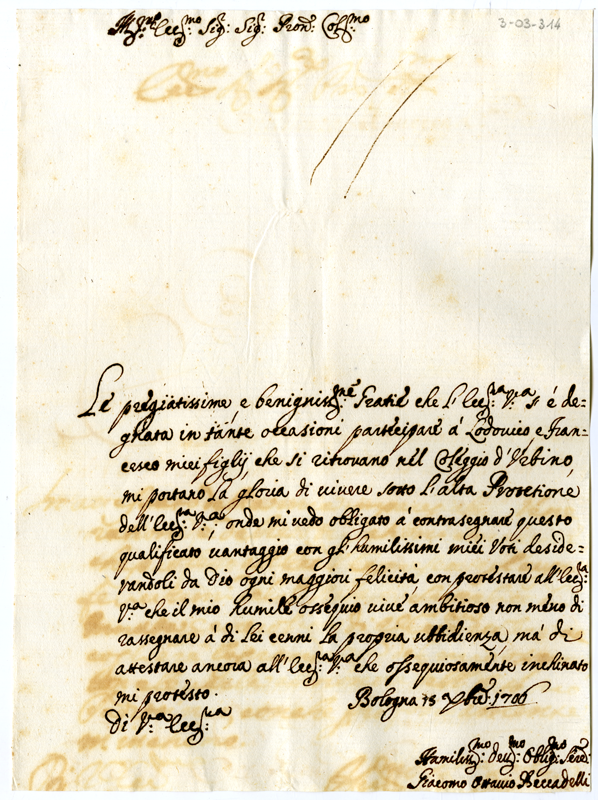 3-03-314
Ill:mo ecc:mo Sig:r Sig:r Pron: Col:mo
Le pregiatissime, e benigniss:me Gratie che l'ecc:za V:a s'è de=
gnata in tante occasioni partecipare a' Lodovico e Fran=
cesco miei figlij che si ritrovano nel Collegio d'Urbino,
mi portano la gloria di vivere sotto l'alta Protetione
dell'ecc:za V:a, onde mi vedo obligato a' contrasegnare questo
qualificato vantaggio con gl'humilissimi miei Voti deside=
randoli da Dio ogni maggiori felicità, con protestare all'ecc:za
V:a che il mio humile ossequio vive ambitioso non meno di
rassegnare a' di Lei cenni la propria ubbidienza, ma' di
attestare ancora all'ecc:za V:a che ossequiosamente inclinato
mi protesto.
Bologna 18 Xbre 1706
Di V:ra ecc:za
Humiliss:mo dev:mo oblig:mo Serv:
Giacomo Ottavio Beccadelli